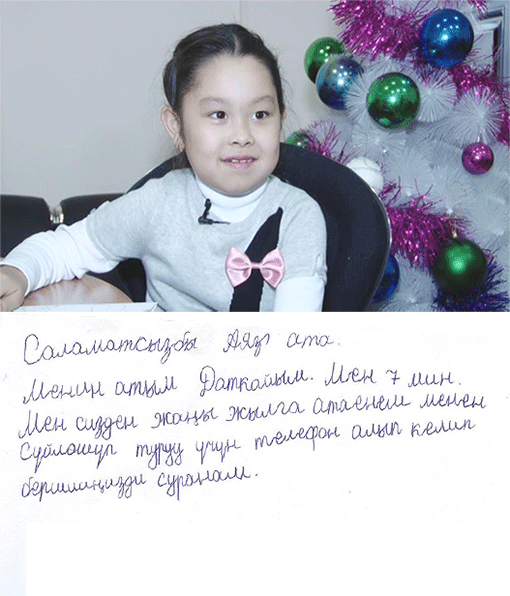 Саламатсызбы Аяз ата.
Менин атым Даткайым. Мен 7 мин.
Мен сизден жаңы жылга атаенем менен
Сүйлөшүп туруу үчүн телефон алып келип
беришиңизди суранам.